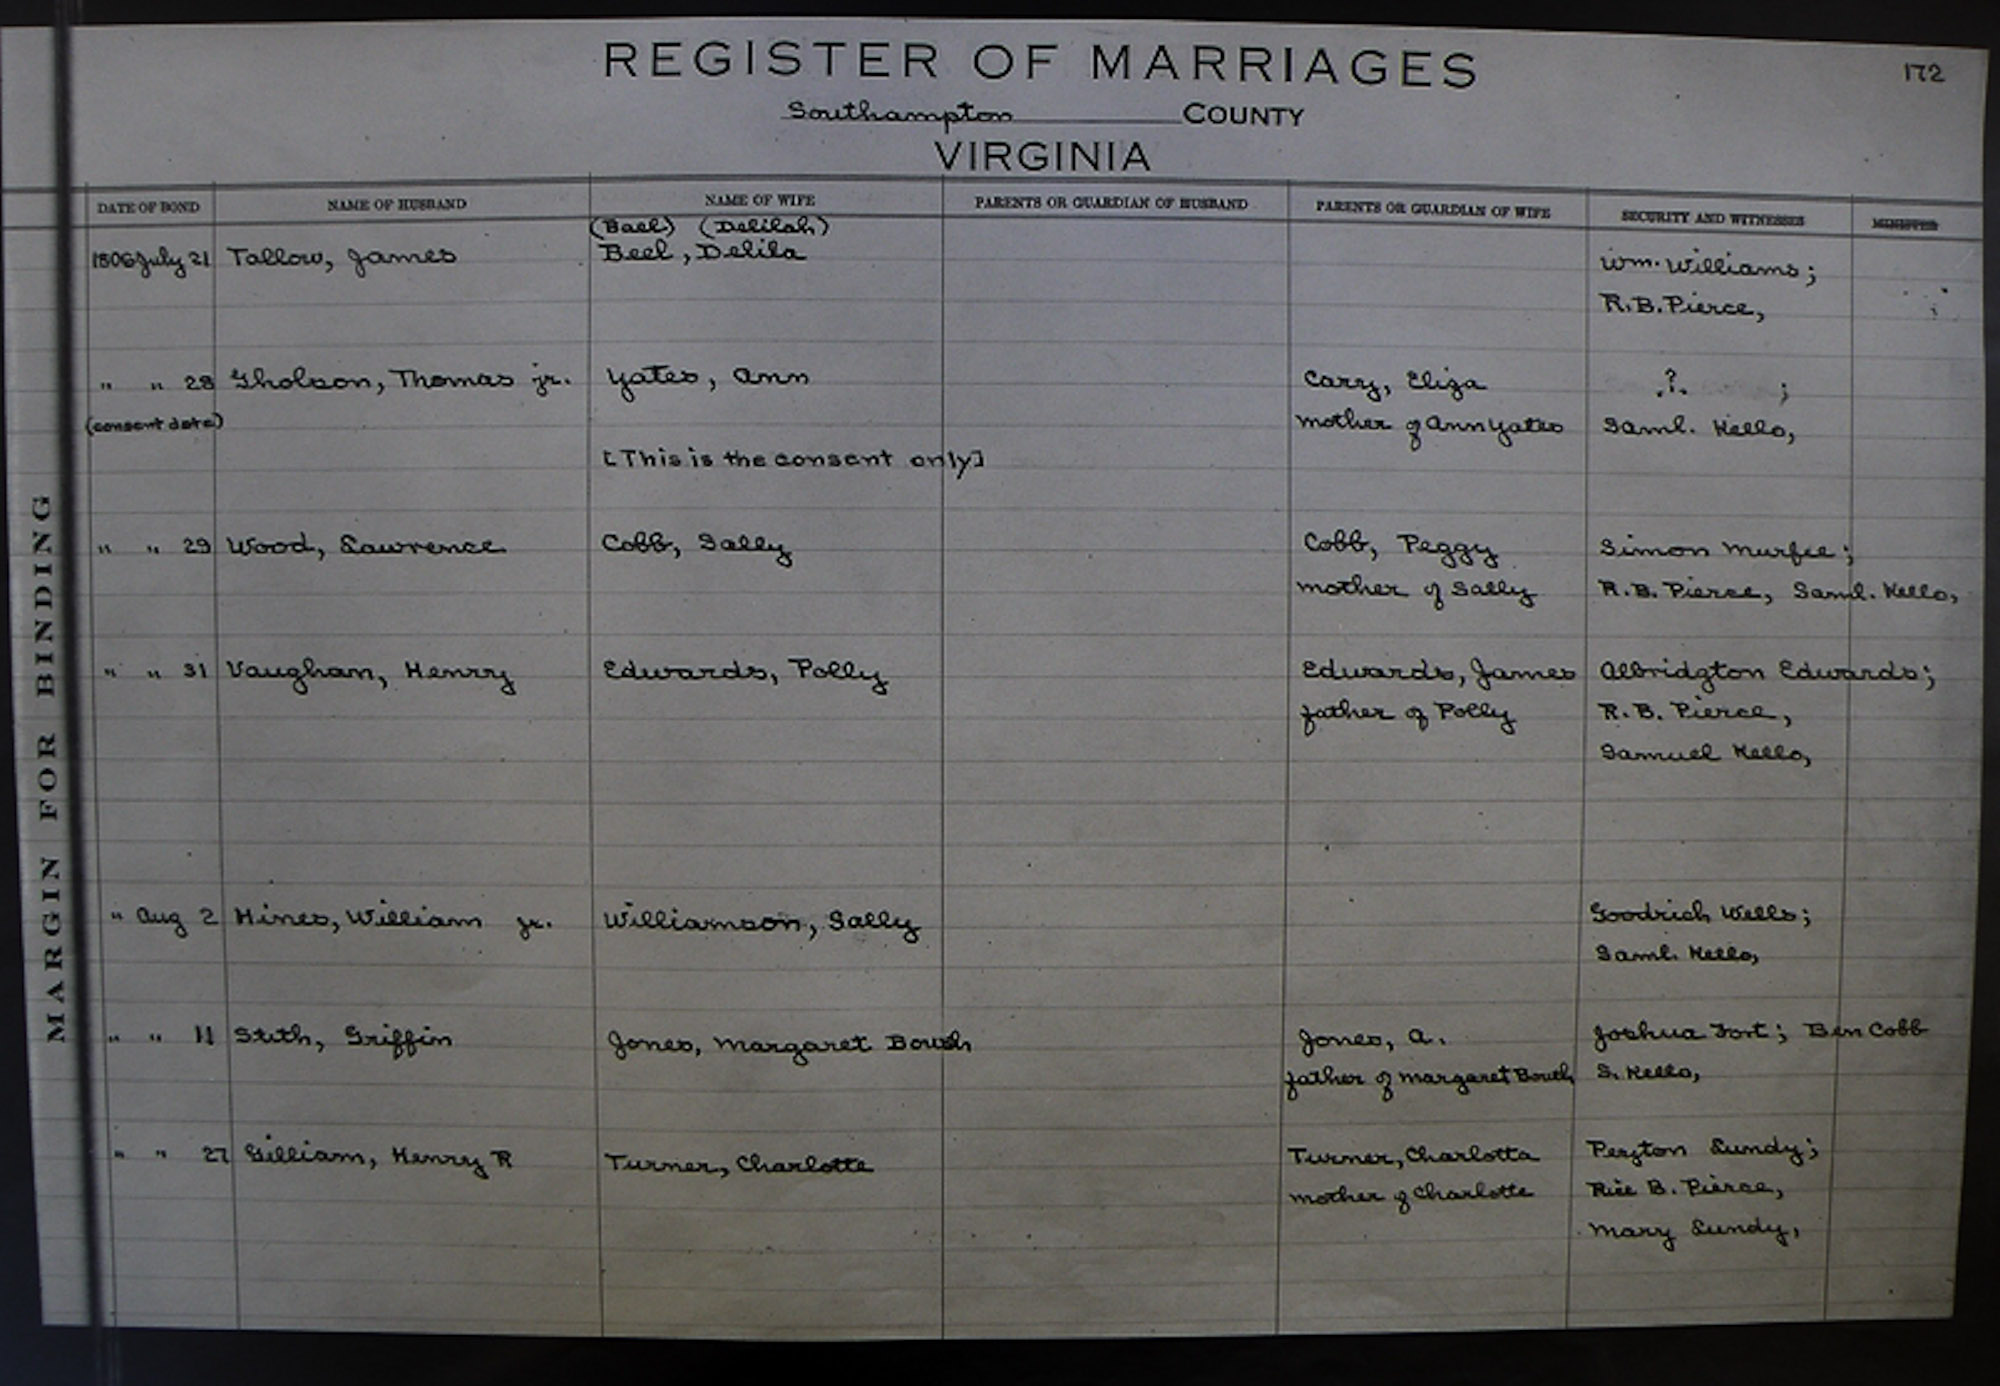 REGISTER OF MARRIAGES
172
Southampton COUNTY
VIRGINIA
MARGIN FOR BINDING
DATE OF BOND NAME OF HUSBAND NAME OF WIFE PARENTS OR GUARDIAN OF HUSBAND PARENTS OR GUARDIAN OF WIFE SECURITY AND WITNESSES MINISTER
(Bael) (Delilah)
1806 July 21 Tallow, James Beel, Delila Wm. Williams;
R.B. Pierce,
" " 28 Gholson, Thomas jr. Yates, Ann Cary, Eliza ? ;
(consent date) mother of Ann Yates Saml. Kello,
[This is the consent only]
" " 29 Wood, Lawrence Cobb, Sally Cobb, Peggy Simon Murfee;
mother of Sally R.B. Pierce, Saml. Kello,
" " 31 Vaughan, Henry Edwards, Polly Edwards, James Albridgton Edwards;
father of Polly R.B. Pierce,
Samuel Kello,
" Aug 2 Hines, William jr. Williamson, Sally Goodrich Wells;
Saml. Kello,
" " 11 Stith, Griffin Jones, Margaret Boush Jones, A. Joshua Fort; Ben Cobb
father of Margaret Boush S. Kello,
" " 27 Gilliam, Henry R Turner, Charlotte Turner, Charlotta Peyton Lundy;
mother of Charlotte Rice B. Pierce,
Mary Lundy,